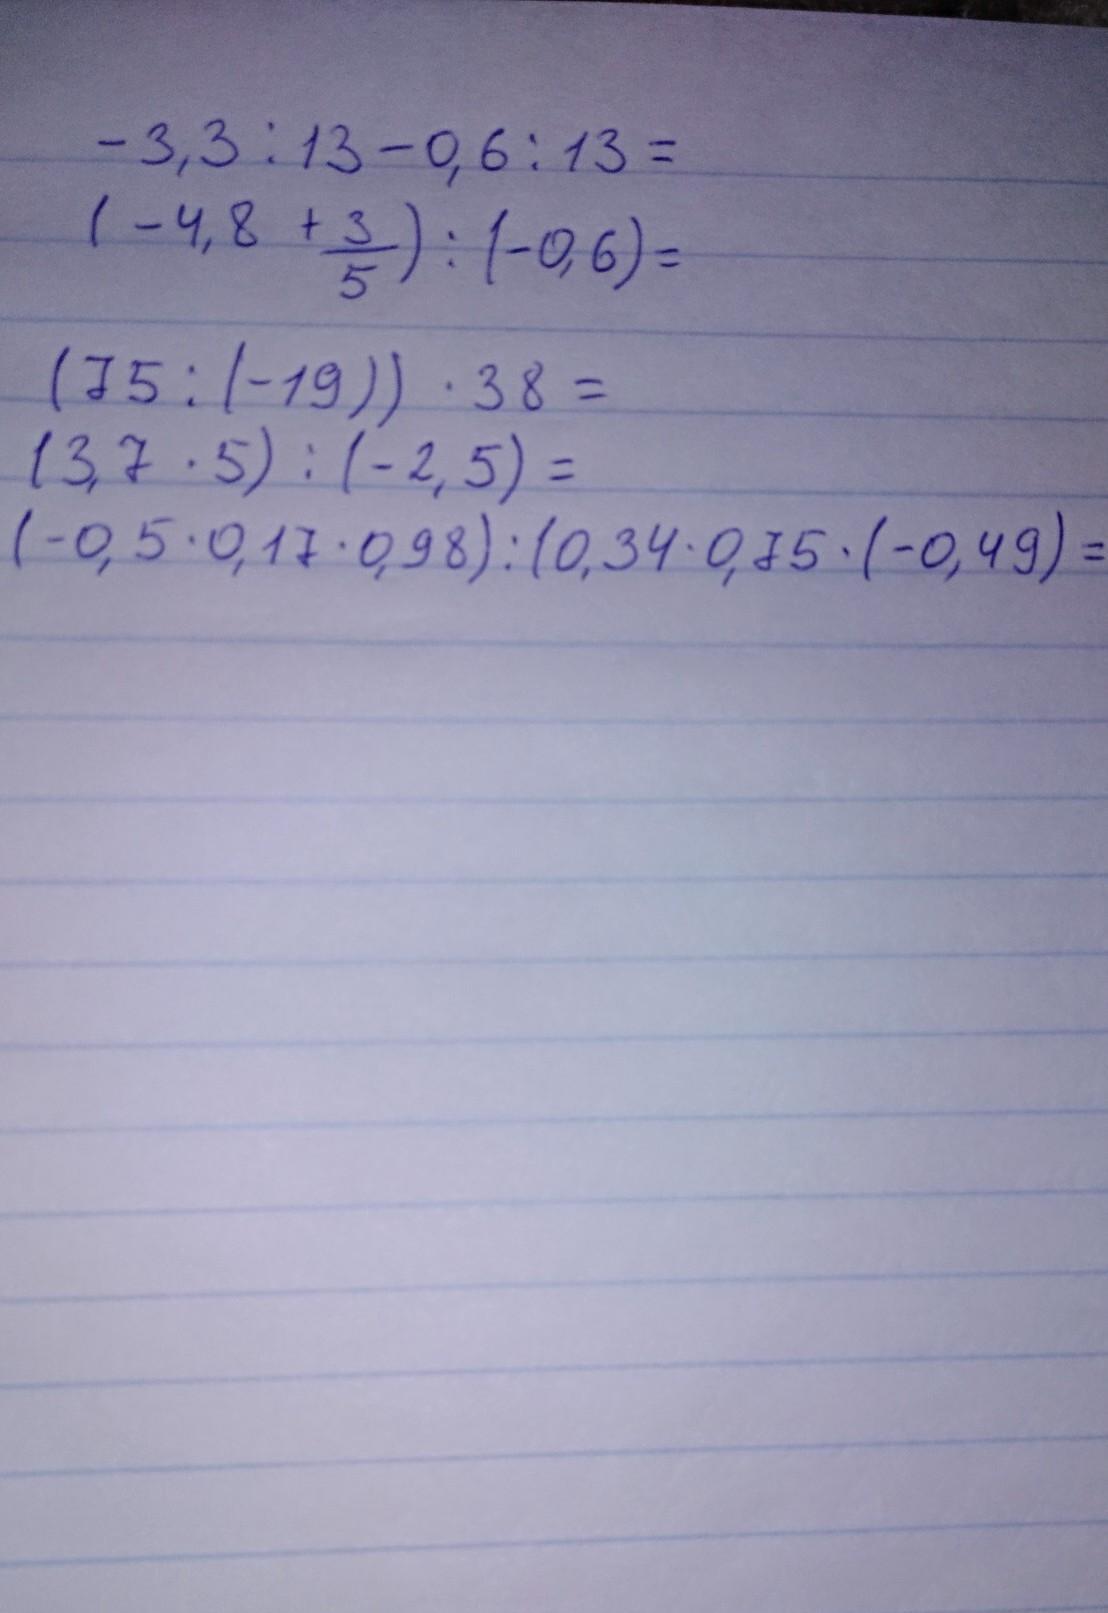 -3,3:13-0,6:13=
(-4,8+3/5):(-0,6)=
(75:(-19))·38=
(3,7·5):(-2,5)=
(-0,5·0,17·0,98):(0,34·0,75·(-0,49)=